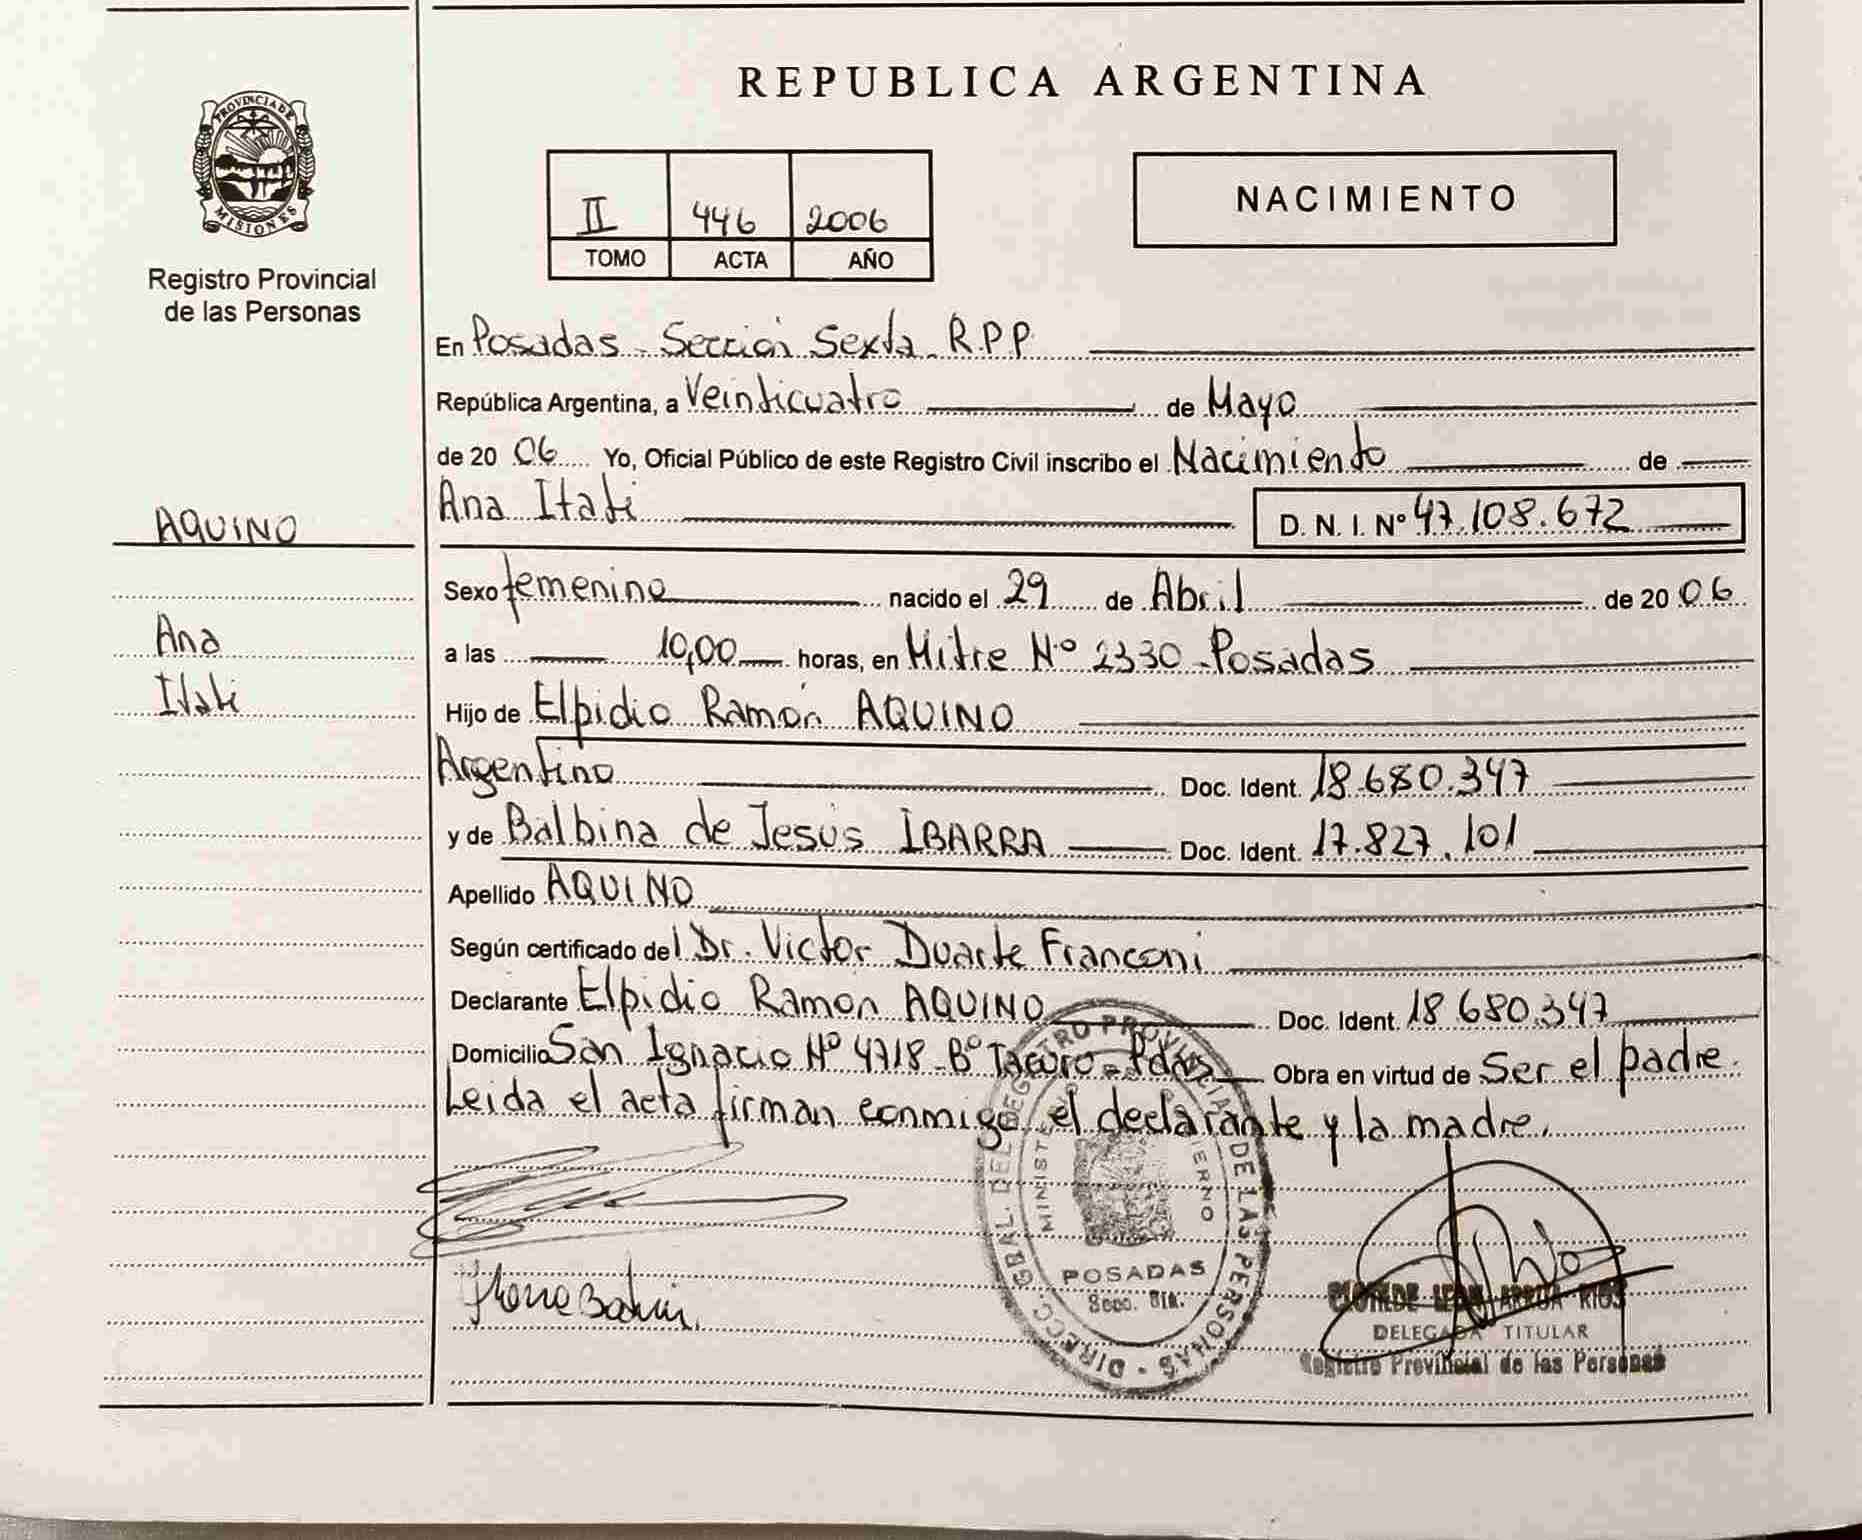 PROVINCIA DE
MISIONES
Registro Provincial
de las Personas
AQUINO
Ana
Itati
REPUBLICA ARGENTINA
II 446 2006
TOMO ACTA AÑO
NACIMIENTO
En Posadas - Sección Sexta. R.P.P.
República Argentina, a Veinticuatro de Mayo
de 20 06 Yo, Oficial Público de este Registro Civil inscribo el Nacimiento de
Ana Itati D. N. I. Nº 47.108.672
Sexo femenino nacido el 29 de Abril de 20 06
a las 10,00 horas, en Mitre Nº 2330 - Posadas
Hijo de Elpidio Ramón AQUINO
Argentino Doc. Ident. 18.680.347
y de Balbina de Jesús IBARRA Doc. Ident. 17.827.101
Apellido AQUINO
Según certificado del Dr. Victor Duarte Franconi
Declarante Elpidio Ramon AQUINO Doc. Ident. 18.680.347
Domicilio San Ignacio Nº 4718 - Bº Tacuro - Pdas Obra en virtud de Ser el padre.
Leida el acta firman conmigo el declarante y la madre.
DIRECC. GRAL. DEL REGISTRO PROVINCIAL DE LAS PERSONAS
POSADAS
Secc. 6ta.
DELEGADA TITULAR
Registro Provincial de las Personas